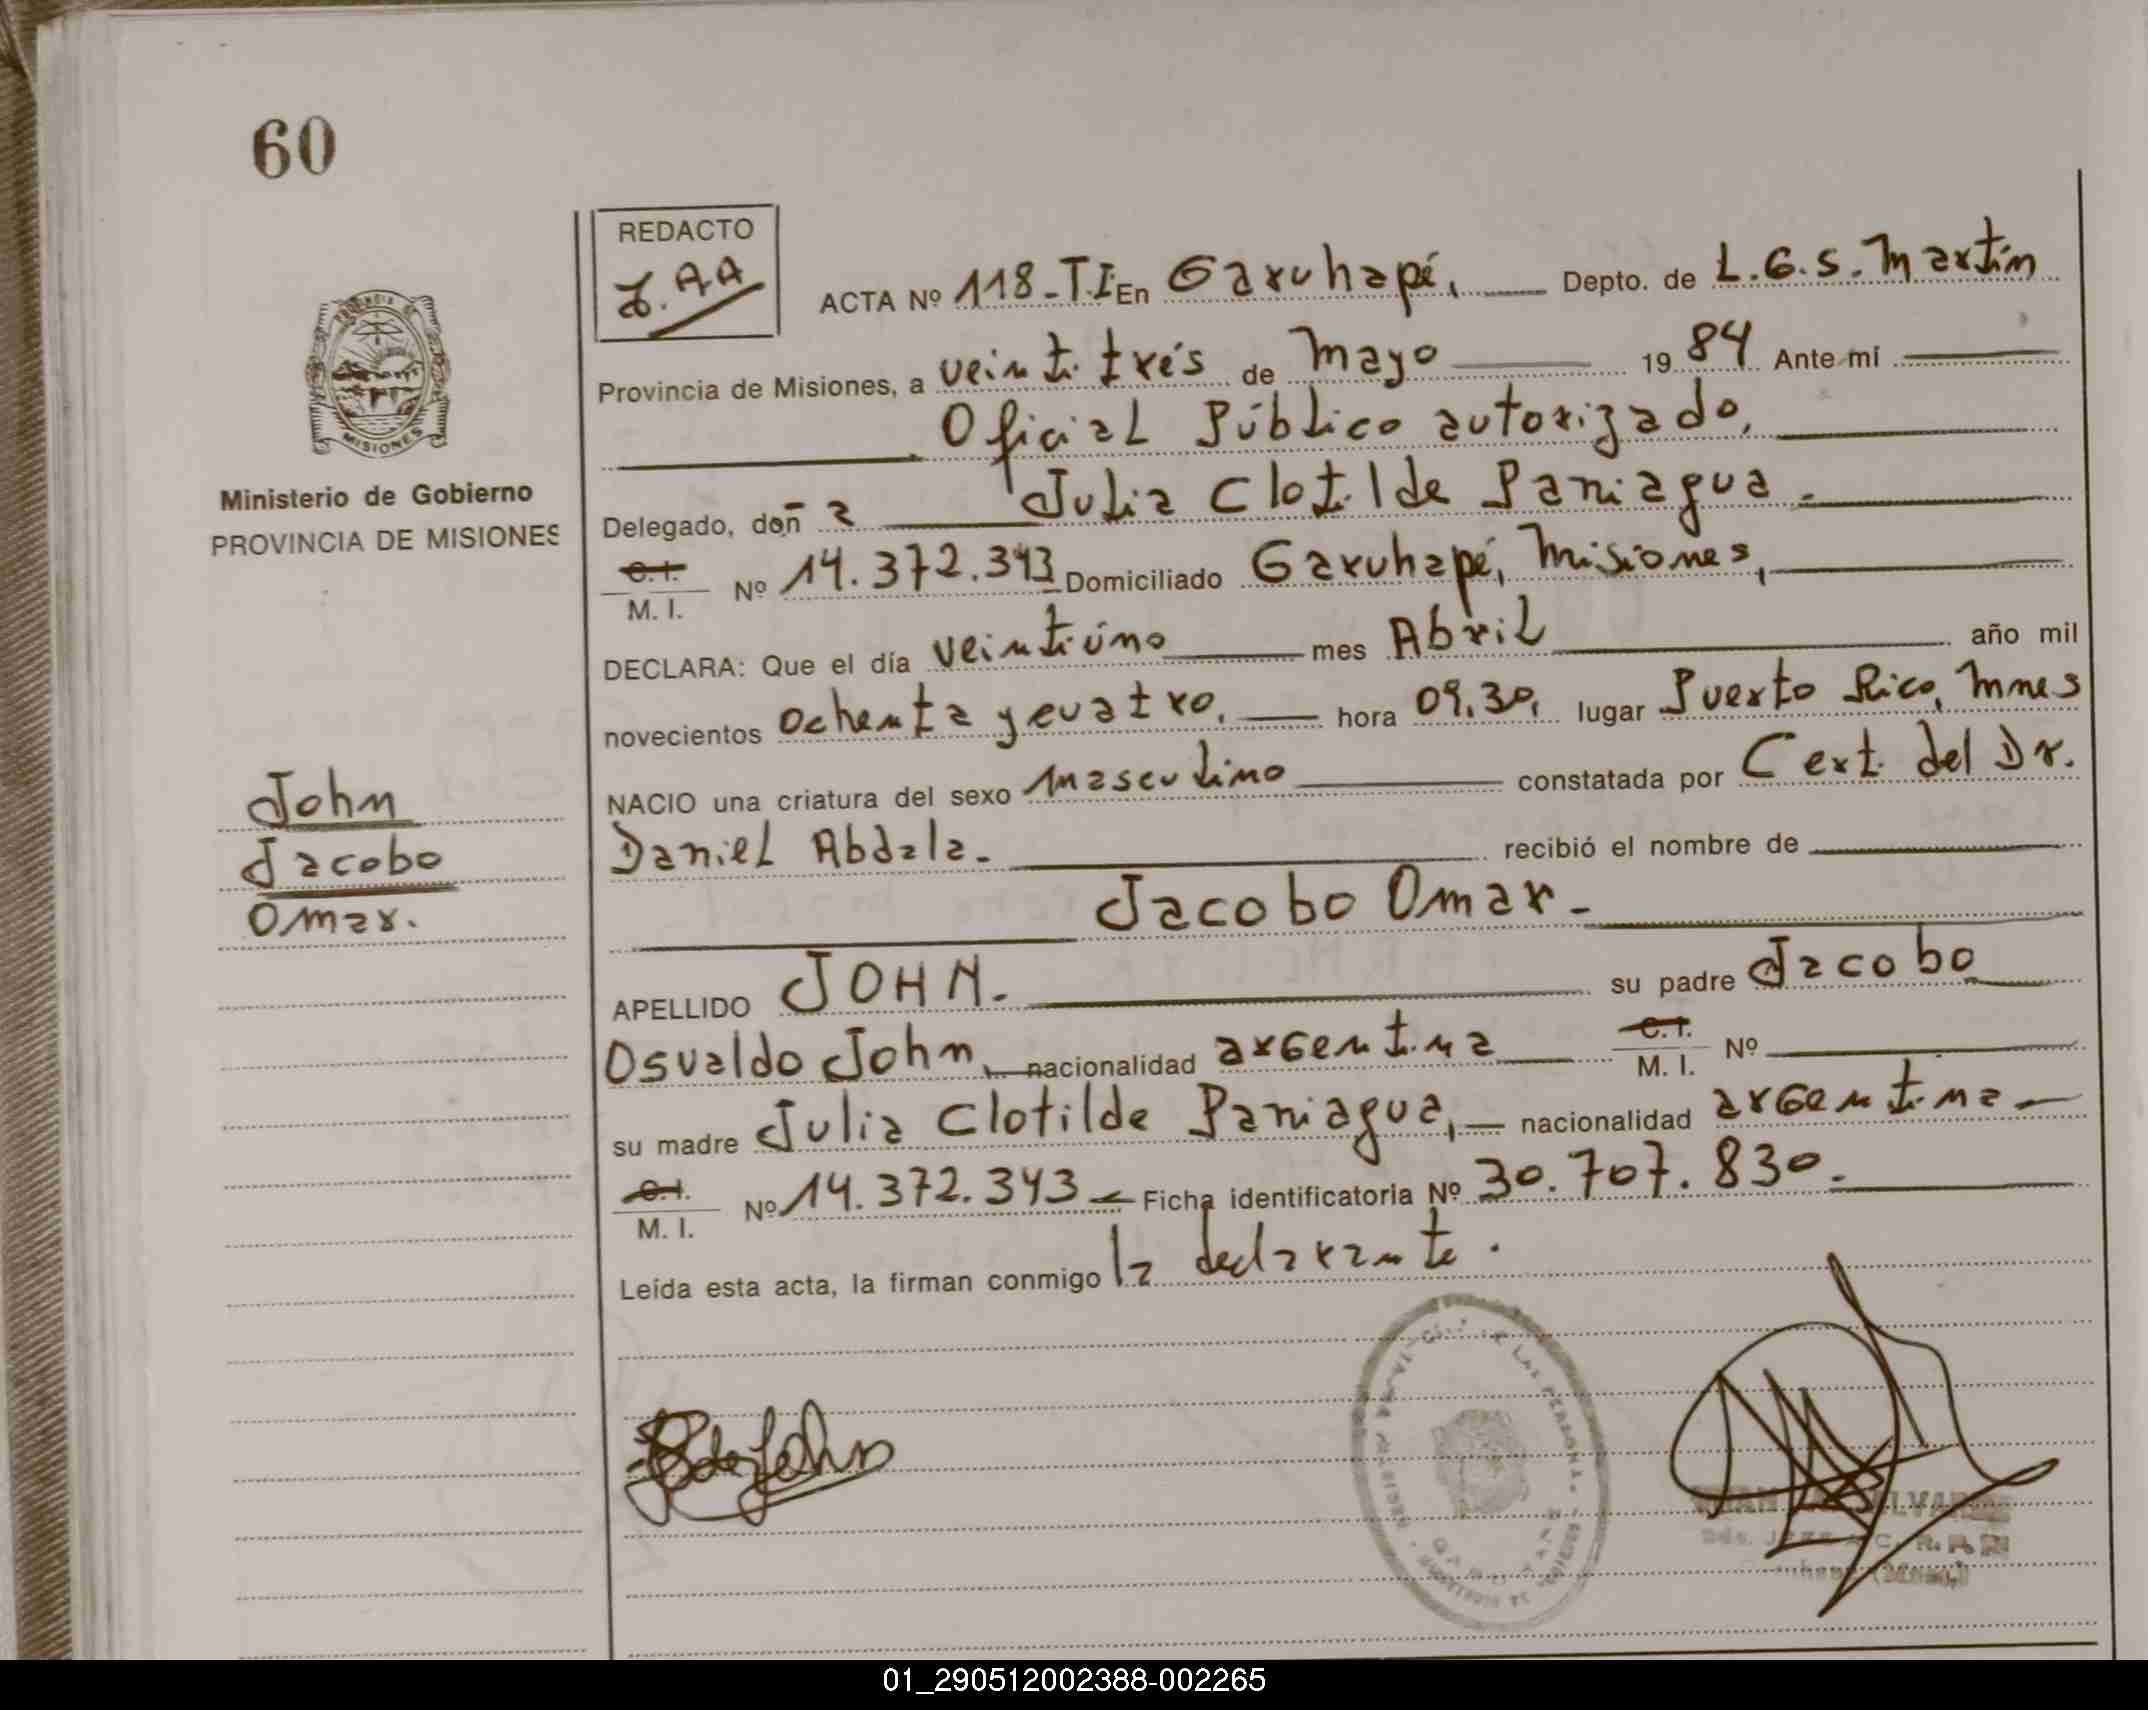 60
REDACTO
J.AA
ACTA Nº 118-T.I En Garuhapé, Depto. de L.G.S. Martín
Provincia de Misiones, a veintitrés de Mayo 1984 Ante mí
Oficial Público autorizado,
Delegado, doña Julia Clotilde Paniagua.
C.I. M.I. Nº 14.372.343 Domiciliado Garuhapé, Misiones,
DECLARA: Que el día veintiúno mes Abril año mil
novecientos ochenta y cuatro, hora 09,30, lugar Puerto Rico, Mnes
NACIO una criatura del sexo masculino constatada por Cert. del Dr.
Daniel Abdala. recibió el nombre de
Jacobo Omar.
APELLIDO JOHN. su padre Jacobo
Osvaldo John, nacionalidad argentina C.I. M.I. Nº
su madre Julia Clotilde Paniagua, nacionalidad argentina
C.I. M.I. Nº 14.372.343 Ficha identificatoria Nº 30.707.830.
Leída esta acta, la firman conmigo la declarante.
PROVINCIA DE
MISIONES
Ministerio de Gobierno
PROVINCIA DE MISIONES
John
Jacobo
Omar.
01_290512002388-002265